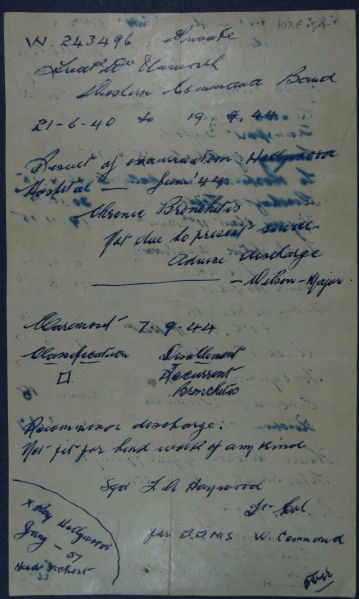 W. 243496 Private
Western Command Band
21-6-40 to 19. 9. 44
Result of examination Hollywood
Hospital — June '44
Chronic Bronchitis
Not due to present service
Advise discharge
— Wilson - Major.
Claremont 7-9-44
Classification Disablement
D Recurrent
Bronchitis
Recommend discharge.
Not fit for hard work of any kind
Sgd L A Haywood
Lt Col
for D.D.M.S W. Command
X Ray Hollywood
Head & Chest
over